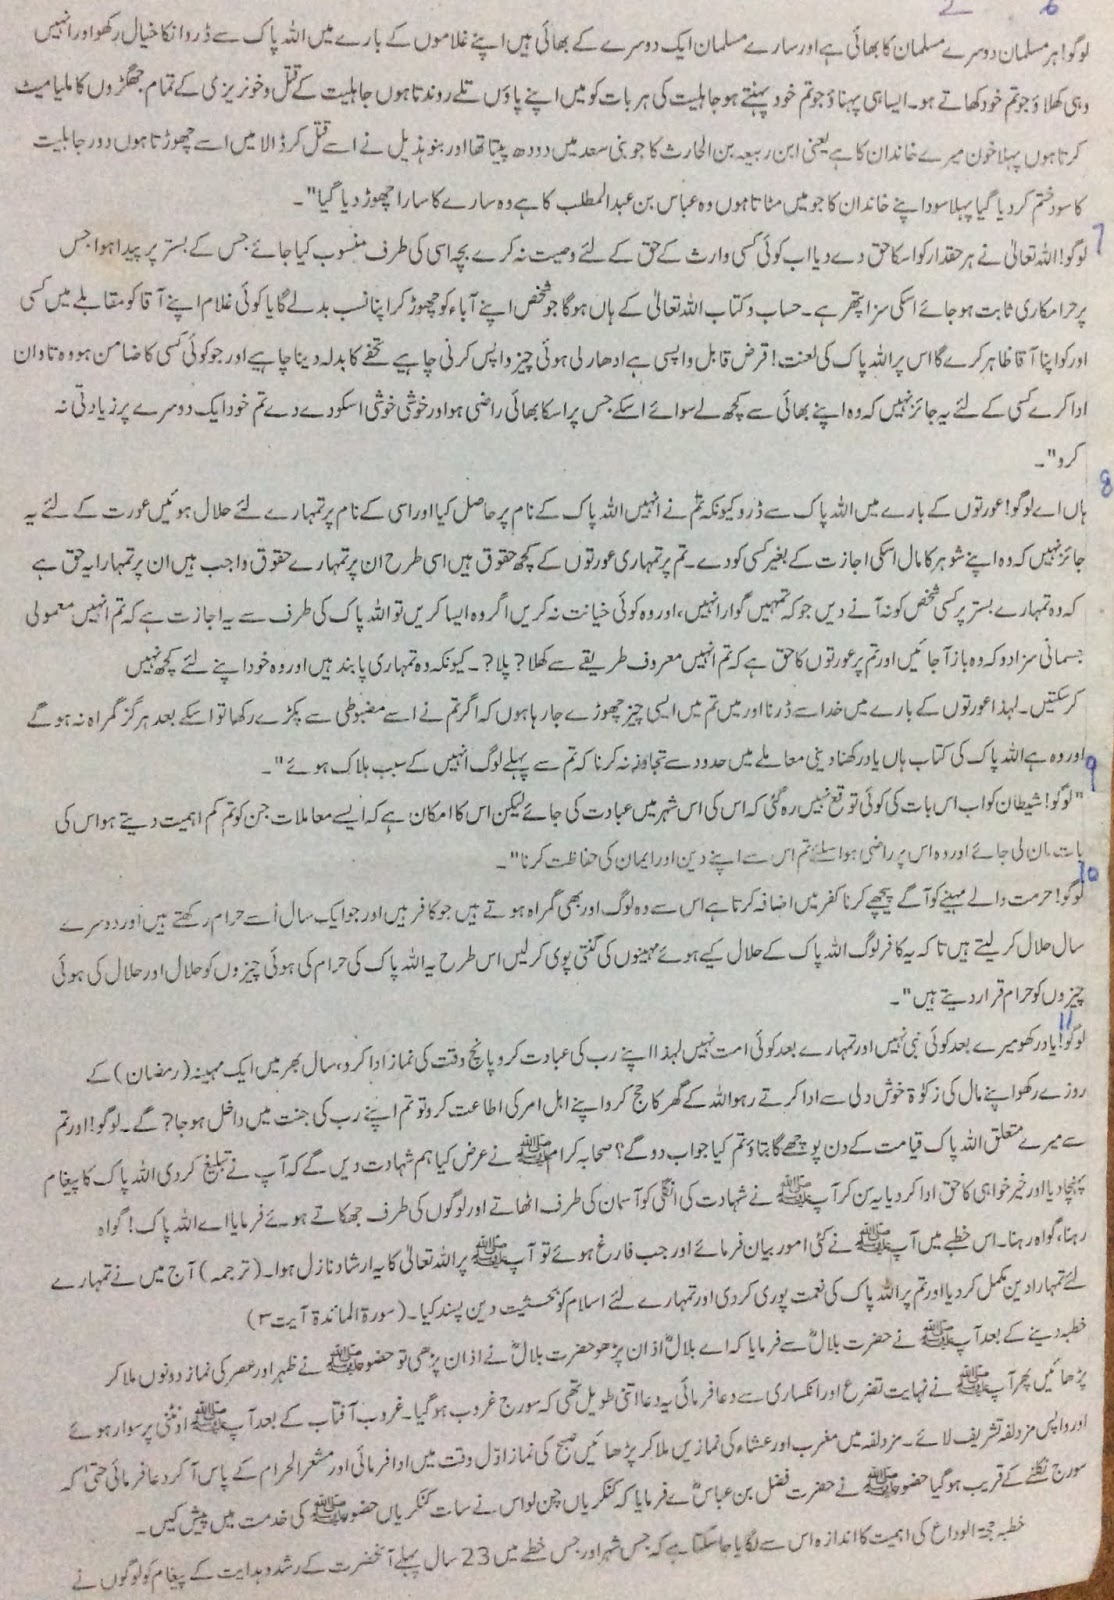 2 6
لوگو! ہر مسلمان دوسرے مسلمان کا بھائی ہے اور سارے مسلمان ایک دوسرے کے بھائی ہیں اپنے غلاموں کے بارے میں اللہ پاک سے ڈرو انکا خیال رکھو اور انہیں
وہی کھلاؤ جو تم خود کھاتے ہو۔ ایسا ہی پہناؤ جو تم خود پہنتے ہو جاہلیت کی ہر بات کو میں اپنے پاؤں تلے روندتا ہوں جاہلیت کے قتل و خونریزی کے تمام جھگڑوں کا ملیامیٹ
کرتا ہوں پہلا خون میرے خاندان کا ہے یعنی ابن ربیعہ بن الحارث کا جو بنی سعد میں دودھ پیتا تھا اور بنو ہذیل نے اسے قتل کر ڈالا میں اسے چھوڑتا ہوں دور جاہلیت
کا سود ختم کر دیا گیا پہلا سود اپنے خاندان کا جو میں مٹاتا ہوں وہ عباس بن عبدالمطلب کا ہے وہ سارے کا سارا چھوڑ دیا گیا"۔
7
لوگو! اللہ تعالیٰ نے ہر حقدار کو اسکا حق دے دیا اب کوئی کسی وارث کے حق کے لئے وصیت نہ کرے بچہ اسی کی طرف منسوب کیا جائے جس کے بستر پر پیدا ہوا جس
پر حرامکاری ثابت ہو جائے اسکی سزا پتھر ہے۔ حساب و کتاب اللہ تعالیٰ کے ہاں ہوگا جو شخص اپنے آباء کو چھوڑ کر اپنا نسب بدلے گا یا کوئی غلام اپنے آقا کو مقابلے میں کسی
اور کو اپنا آقا ظاہر کرے گا اس پر اللہ پاک کی لعنت! قرض قابل واپسی ہے ادھار لی ہوئی چیز واپس کرنی چاہیے تحفے کا بدلہ دینا چاہیے اور جو کوئی کسی کا ضامن ہو وہ تاوان
ادا کرے کسی کے لئے یہ جائز نہیں کہ وہ اپنے بھائی سے کچھ لے سوائے اسکے جس پر اسکا بھائی راضی ہو اور خوشی خوشی اسکو دے دے تم خود ایک دوسرے پر زیادتی نہ
کرو"۔
8
ہاں اے لوگو! عورتوں کے بارے میں اللہ پاک سے ڈرو کیونکہ تم نے انہیں اللہ پاک کے نام پر حاصل کیا اور اسی کے نام پر تمہارے لئے حلال ہوئیں عورت کے لئے یہ
جائز نہیں کہ وہ اپنے شوہر کا مال اسکی اجازت کے بغیر کسی کو دے۔ تم پر تمہاری عورتوں کے کچھ حقوق ہیں اسی طرح ان پر تمہارے حقوق واجب ہیں ان پر تمہارا یہ حق ہے
کہ وہ تمہارے بستر پر کسی شخص کو نہ آنے دیں جو کہ تمہیں گوارا نہیں، اور وہ کوئی خیانت نہ کریں اگر وہ ایسا کریں تو اللہ پاک کی طرف سے یہ اجازت ہے کہ تم انہیں معمولی
جسمانی سزا دو کہ وہ باز آ جائیں اور تم پر عورتوں کا حق ہے کہ تم انہیں معروف طریقے سے کھلا? پلا?۔ کیونکہ وہ تمہاری پابند ہیں اور وہ خود اپنے لئے کچھ نہیں
کرسکتیں۔ لہذا عورتوں کے بارے میں خدا سے ڈرنا اور میں تم میں ایسی چیز چھوڑے جا رہا ہوں کہ اگر تم نے اسے مضبوطی سے پکڑے رکھا تو اسکے بعد ہرگز گمراہ نہ ہو گے
اور وہ ہے اللہ پاک کی کتاب ہاں یاد رکھنا دینی معاملے میں حدود سے تجاوز نہ کرنا کہ تم سے پہلے لوگ انہیں کے سبب ہلاک ہوئے"۔
9
"لوگو! شیطان کو اب اس بات کی کوئی توقع نہیں رہ گئی کہ اس کی اس شہر میں عبادت کی جائے لیکن اس کا امکان ہے کہ ایسے معاملات جن کو تم کم اہمیت دیتے ہو اس کی
بات مان لی جائے اور وہ اس پر راضی ہو اسلئے تم اس سے اپنے دین اور ایمان کی حفاظت کرنا"۔
10
لوگو! حرمت والے مہینے کو آگے پیچھے کرنا کفر میں اضافہ کرتا ہے اس سے وہ لوگ اور بھی گمراہ ہوتے ہیں جو کافر ہیں اور جو ایک سال اُسے حرام رکھتے ہیں اور دوسرے
سال حلال کر لیتے ہیں تاکہ یہ کافر لوگ اللہ پاک کے حلال کیے ہوئے مہینوں کی گنتی پوی کر لیں اس طرح یہ اللہ پاک کی حرام کی ہوئی چیزوں کو حلال اور حلال کی ہوئی
چیزوں کو حرام قرار دیتے ہیں"۔
11
لوگو! یاد رکھو میرے بعد کوئی نبی نہیں اور تمہارے بعد کوئی امت نہیں لہذا اپنے رب کی عبادت کرو پانچ وقت کی نماز ادا کرو، سال بھر میں ایک مہینہ (رمضان) کے
روزے رکھو اپنے مال کی زکوٰۃ خوش دلی سے ادا کرتے رہو اللہ کے گھر کا حج کرو اپنے اہل امر کی اطاعت کرو تو تم اپنے رب کی جنت میں داخل ہو جا? گے۔ لوگو! اور تم
سے میرے متعلق اللہ پاک قیامت کے دن پوچھے گا بتاؤ تم کیا جواب دو گے؟ صحابہ کرام ﷺ نے عرض کیا ہم شہادت دیں گے کہ آپ نے تبلیغ کر دی اللہ پاک کا پیغام
پہنچا دیا اور خیر خواہی کا حق ادا کر دیا یہ سن کر آپ ﷺ نے شہادت کی انگلی کو آسمان کی طرف اٹھاتے اور لوگوں کی طرف جھکاتے ہوئے فرمایا اے اللہ پاک! گواہ
رہنا، گواہ رہنا۔ اس خطبے میں آپ ﷺ نے کئی امور بیان فرمائے اور جب فارغ ہوئے تو آپ ﷺ پر اللہ تعالیٰ کا یہ ارشاد نازل ہوا۔ (ترجمہ) آج میں نے تمہارے
لئے تمہارا دین مکمل کر دیا اور تم پر اللہ پاک کی نعمت پوری کر دی اور تمہارے لئے اسلام کو بحیثیت دین پسند کیا۔ (سورۃ المائدۃ آیت ۳)
خطبہ دینے کے بعد آپ ﷺ نے حضرت بلالؓ سے فرمایا کہ اے بلالؓ اذان پڑھو حضرت بلالؓ نے اذان پڑھی تو حضور ﷺ نے ظہر اور عصر کی نماز دونوں ملا کر
پڑھائیں پھر آپ ﷺ نے نہایت تضرع اور انکساری سے دعا فرمائی یہ دعا اتنی طویل تھی کہ سورج غروب ہو گیا۔ غروب آفتاب کے بعد آپ ﷺ اونٹنی پر سوار ہوئے
اور واپس مزدلفہ تشریف لائے۔ مزدلفہ میں مغرب اور عشاء کی نمازیں ملا کر پڑھائیں صبح کی نماز اوّل وقت میں ادا فرمائی اور مشعر الحرام کے پاس آ کر دعا فرمائی حتیٰ کہ
سورج نکلنے کے قریب ہو گیا حضور ﷺ نے حضرت فضل بن عباسؓ ے فرمایا کہ کنکریاں چن لو اس نے سات کنکریاں حضور ﷺ کی خدمت میں پیش کیں۔
خطبہ حجۃ الوداع کی اہمیت کا اندازہ اس سے لگایا جا سکتا ہے کہ جس شہر اور جس خطے میں 23 سال پہلے آنحضرت کے رشد و ہدایت کے پیغام کو لوگوں نے